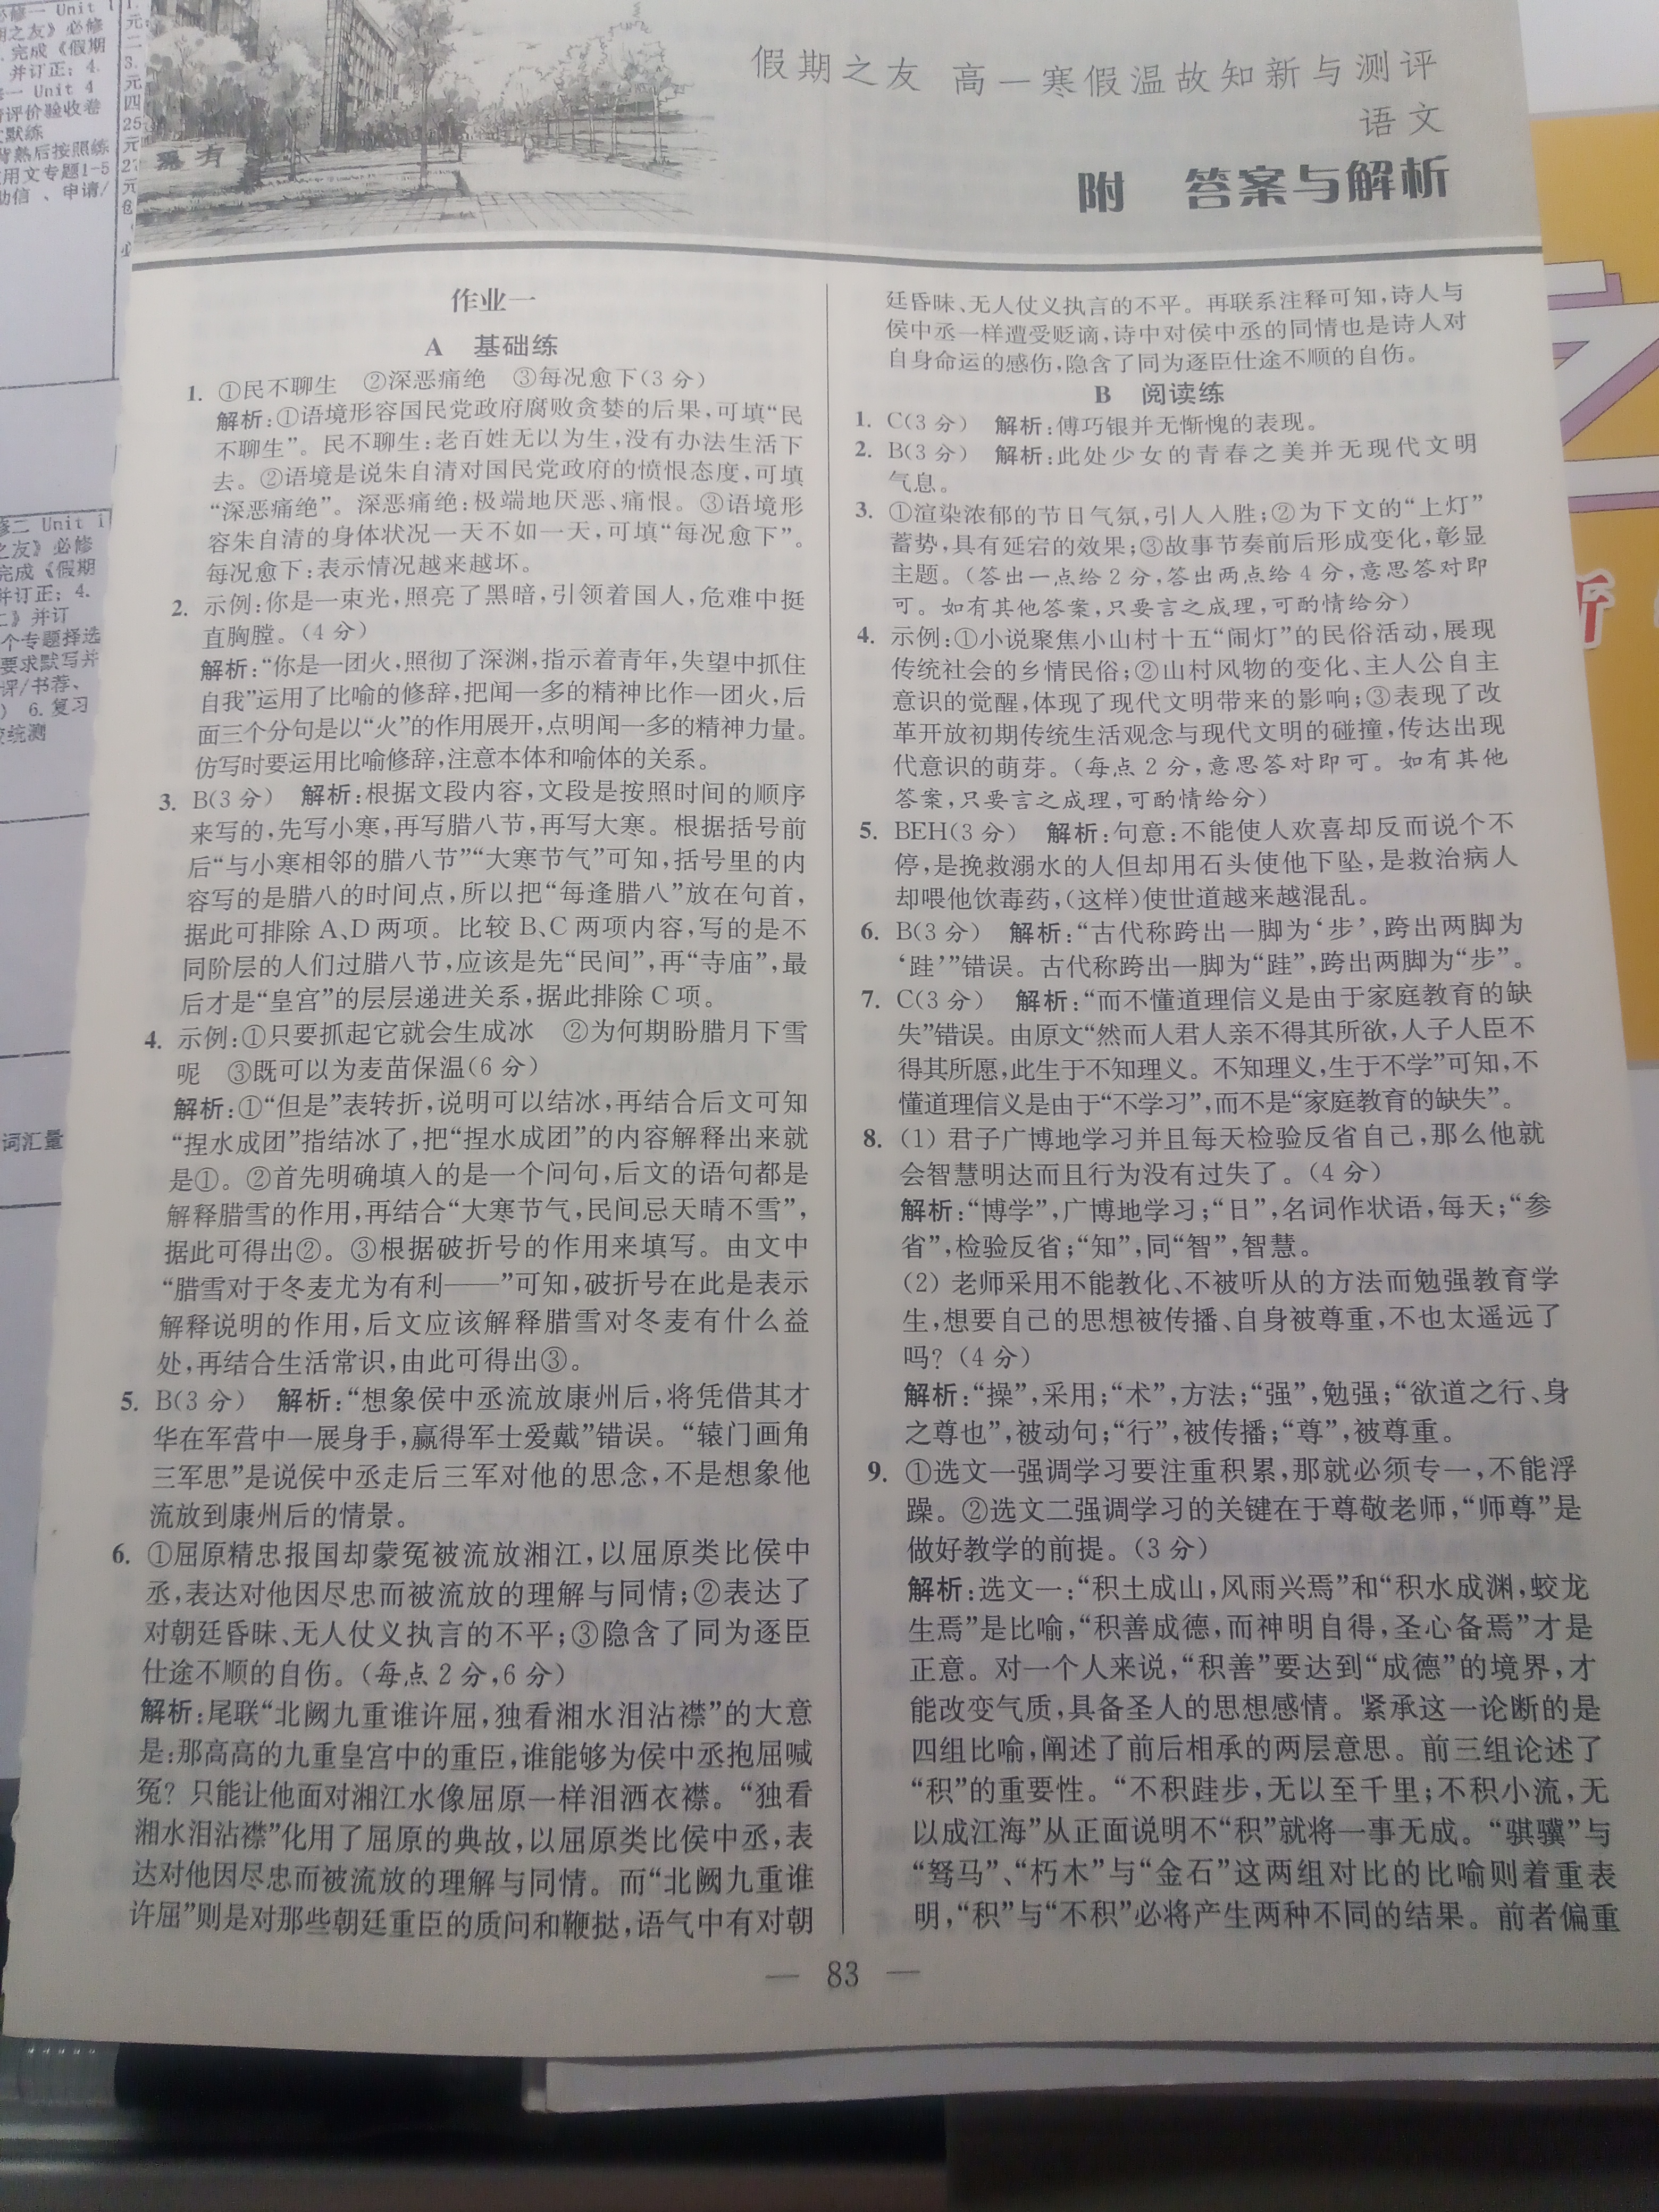 假期之友 高一寒假温故知新与测评
语文
附 答案与解析
作业一
A 基础练
1. ①民不聊生 ②深恶痛绝 ③每况愈下(3分)
解析:①语境形容国民党政府腐败贪婪的后果,可填“民
不聊生”。民不聊生:老百姓无以为生,没有办法生活下
去。②语境是说朱自清对国民党政府的愤恨态度,可填
“深恶痛绝”。深恶痛绝:极端地厌恶、痛恨。③语境形
容朱自清的身体状况一天不如一天,可填“每况愈下”。
每况愈下:表示情况越来越坏。
2. 示例:你是一束光,照亮了黑暗,引领着国人,危难中挺
直胸膛。(4分)
解析:“你是一团火,照彻了深渊,指示着青年,失望中抓住
自我”运用了比喻的修辞,把闻一多的精神比作一团火,后
面三个分句是以“火”的作用展开,点明闻一多的精神力量。
仿写时要运用比喻修辞,注意本体和喻体的关系。
3. B(3分) 解析:根据文段内容,文段是按照时间的顺序
来写的,先写小寒,再写腊八节,再写大寒。根据括号前
后“与小寒相邻的腊八节”“大寒节气”可知,括号里的内
容写的是腊八的时间点,所以把“每逢腊八”放在句首,
据此可排除A、D两项。比较B、C两项内容,写的是不
同阶层的人们过腊八节,应该是先“民间”,再“寺庙”,最
后才是“皇宫”的层层递进关系,据此排除C项。
4. 示例:①只要抓起它就会生成冰 ②为何期盼腊月下雪
呢 ③既可以为麦苗保温(6分)
解析:①“但是”表转折,说明可以结冰,再结合后文可知
“捏水成团”指结冰了,把“捏水成团”的内容解释出来就
是①。②首先明确填入的是一个问句,后文的语句都是
解释腊雪的作用,再结合“大寒节气,民间忌天晴不雪”,
据此可得出②。③根据破折号的作用来填写。由文中
“腊雪对于冬麦尤为有利——”可知,破折号在此是表示
解释说明的作用,后文应该解释腊雪对冬麦有什么益
处,再结合生活常识,由此可得出③。
5. B(3分) 解析:“想象侯中丞流放康州后,将凭借其才
华在军营中一展身手,赢得军士爱戴”错误。“辕门画角
三军思”是说侯中丞走后三军对他的思念,不是想象他
流放到康州后的情景。
6. ①屈原精忠报国却蒙冤被流放湘江,以屈原类比侯中
丞,表达对他因尽忠而被流放的理解与同情;②表达了
对朝廷昏昧、无人仗义执言的不平;③隐含了同为逐臣
仕途不顺的自伤。(每点2分,6分)
解析:尾联“北阙九重谁许屈,独看湘水泪沾襟”的大意
是:那高高的九重皇宫中的重臣,谁能够为侯中丞抱屈喊
冤?只能让他面对湘江水像屈原一样泪洒衣襟。“独看
湘水泪沾襟”化用了屈原的典故,以屈原类比侯中丞,表
达对他因尽忠而被流放的理解与同情。而“北阙九重谁
许屈”则是对那些朝廷重臣的质问和鞭挞,语气中有对朝
廷昏昧、无人仗义执言的不平。再联系注释可知,诗人与
侯中丞一样遭受贬谪,诗中对侯中丞的同情也是诗人对
自身命运的感伤,隐含了同为逐臣仕途不顺的自伤。
B 阅读练
1. C(3分) 解析:傅巧银并无惭愧的表现。
2. B(3分) 解析:此处少女的青春之美并无现代文明
气息。
3. ①渲染浓郁的节日气氛,引人入胜;②为下文的“上灯”
蓄势,具有延宕的效果;③故事节奏前后形成变化,彰显
主题。(答出一点给2分,答出两点给4分,意思答对即
可。如有其他答案,只要言之成理,可酌情给分)
4. 示例:①小说聚焦小山村十五“闹灯”的民俗活动,展现
传统社会的乡情民俗;②山村风物的变化、主人公自主
意识的觉醒,体现了现代文明带来的影响;③表现了改
革开放初期传统生活观念与现代文明的碰撞,传达出现
代意识的萌芽。(每点2分,意思答对即可。如有其他
答案,只要言之成理,可酌情给分)
5. BEH(3分) 解析:句意:不能使人欢喜却反而说个不
停,是挽救溺水的人但却用石头使他下坠,是救治病人
却喂他饮毒药,(这样)使世道越来越混乱。
6. B(3分) 解析:“古代称跨出一脚为‘步’,跨出两脚为
‘跬’”错误。古代称跨出一脚为“跬”,跨出两脚为“步”。
7. C(3分) 解析:“而不懂道理信义是由于家庭教育的缺
失”错误。由原文“然而人君人亲不得其所欲,人子人臣不
得其所愿,此生于不知理义。不知理义,生于不学”可知,不
懂道理信义是由于“不学习”,而不是“家庭教育的缺失”。
8. (1) 君子广博地学习并且每天检验反省自己,那么他就
会智慧明达而且行为没有过失了。(4分)
解析:“博学”,广博地学习;“日”,名词作状语,每天;“参
省”,检验反省;“知”,同“智”,智慧。
(2) 老师采用不能教化、不被听从的方法而勉强教育学
生,想要自己的思想被传播、自身被尊重,不也太遥远了
吗?(4分)
解析:“操”,采用;“术”,方法;“强”,勉强;“欲道之行、身
之尊也”,被动句;“行”,被传播;“尊”,被尊重。
9. ①选文一强调学习要注重积累,那就必须专一,不能浮
躁。②选文二强调学习的关键在于尊敬老师,“师尊”是
做好教学的前提。(3分)
解析:选文一:“积土成山,风雨兴焉”和“积水成渊,蛟龙
生焉”是比喻,“积善成德,而神明自得,圣心备焉”才是
正意。对一个人来说,“积善”要达到“成德”的境界,才
能改变气质,具备圣人的思想感情。紧承这一论断的是
四组比喻,阐述了前后相承的两层意思。前三组论述了
“积”的重要性。“不积跬步,无以至千里;不积小流,无
以成江海”从正面说明不“积”就将一事无成。“骐骥”与
“驽马”、“朽木”与“金石”这两组对比的比喻则着重表
明,“积”与“不积”必将产生两种不同的结果。前者偏重
— 83 —
必修一 Unit 1
期之友》必修
.完成《假期
并订正; 4.
修一 Unit 4
评价验收卷
默练
背熟后按照练
用文专题1-5
助信 、申请/
修二 Unit 1
之友》必修
完成《假期
并订正; 4.
二》并订
个专题择选
要求默写并
评/书荐、
) 6.复习
统测
词汇量